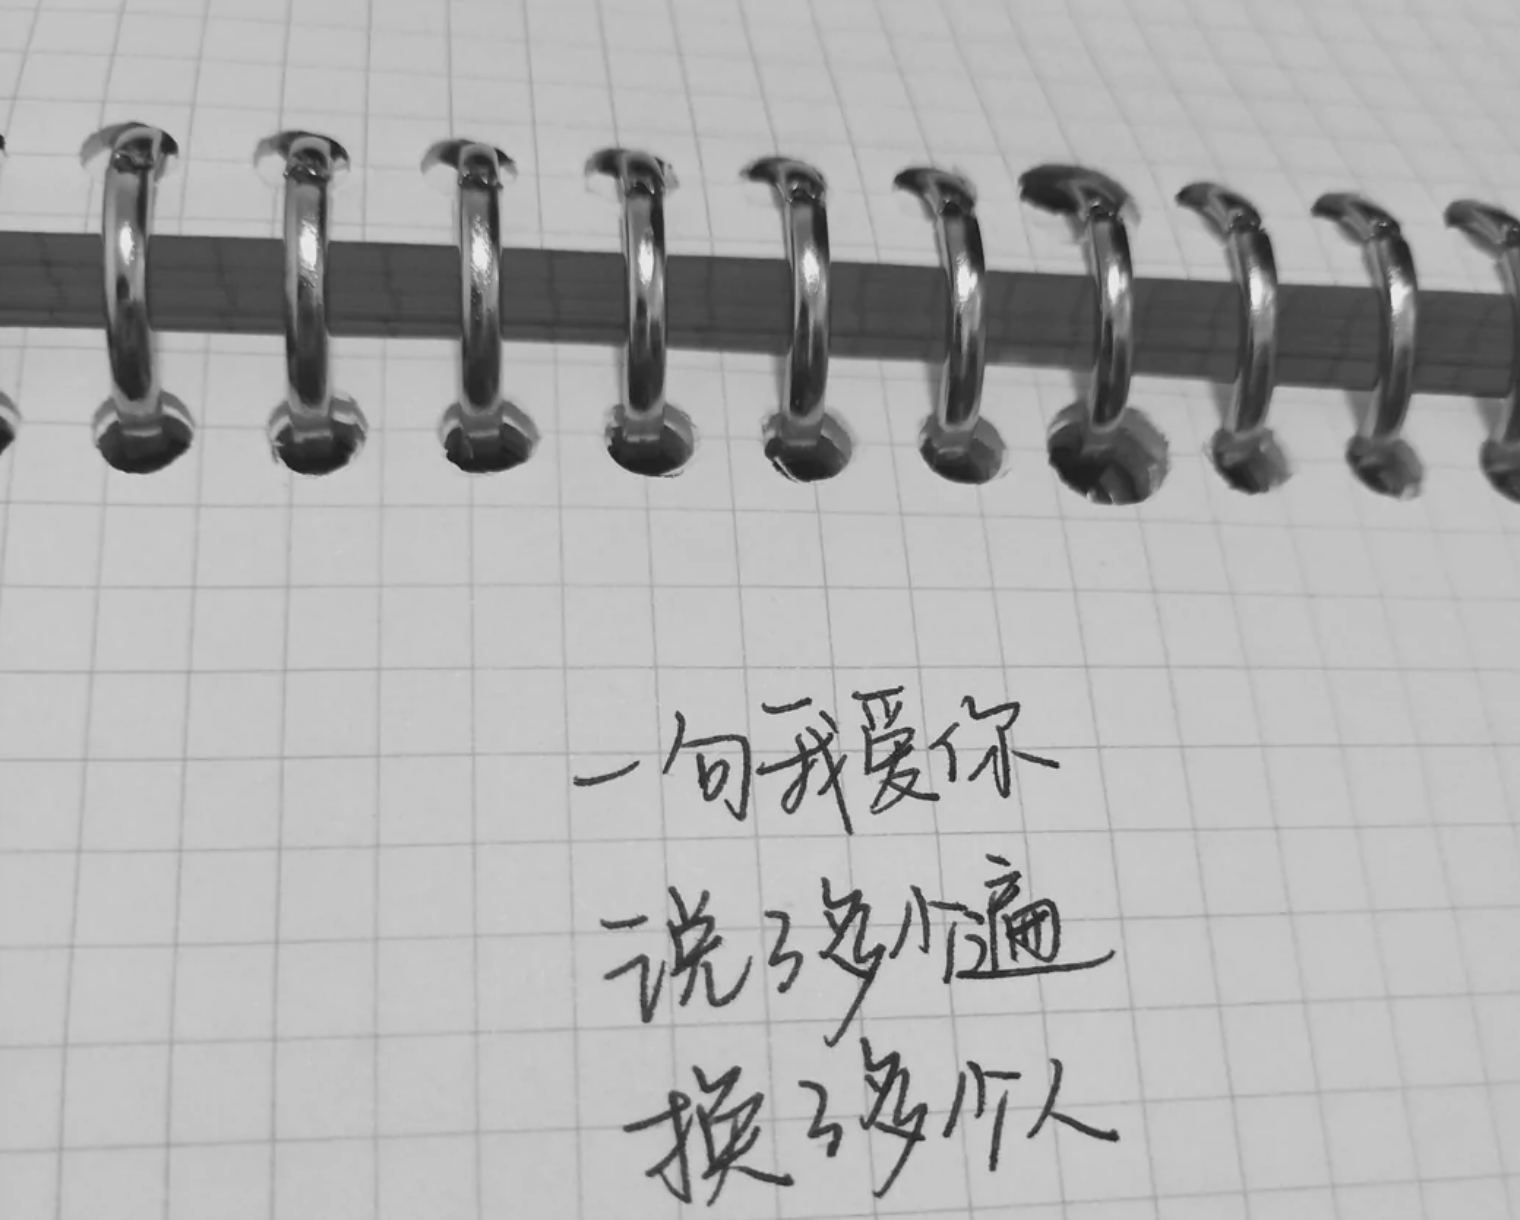 一句我爱你
说了多少遍
换了多少人